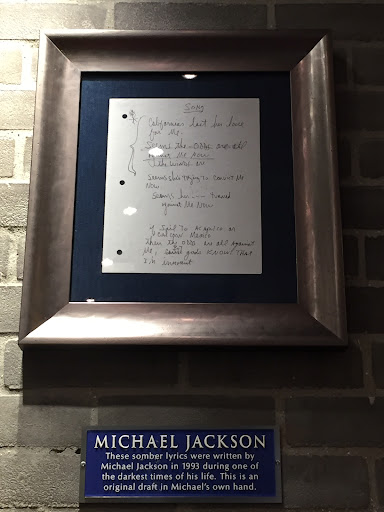 SONG
California's lost her love
for Me.
Seems the ODDS are all
against Me Now
Seems she's trying to convict Me
Now
Seems her turned
against Me Now
if I fail to
then the odds are all against
Me, god's KNOW That
I'm innocent
MICHAEL JACKSON
These somber lyrics were written by
Michael Jackson in 1993 during one of
the darkest times of his life. This is an
original draft in Michael's own hand.